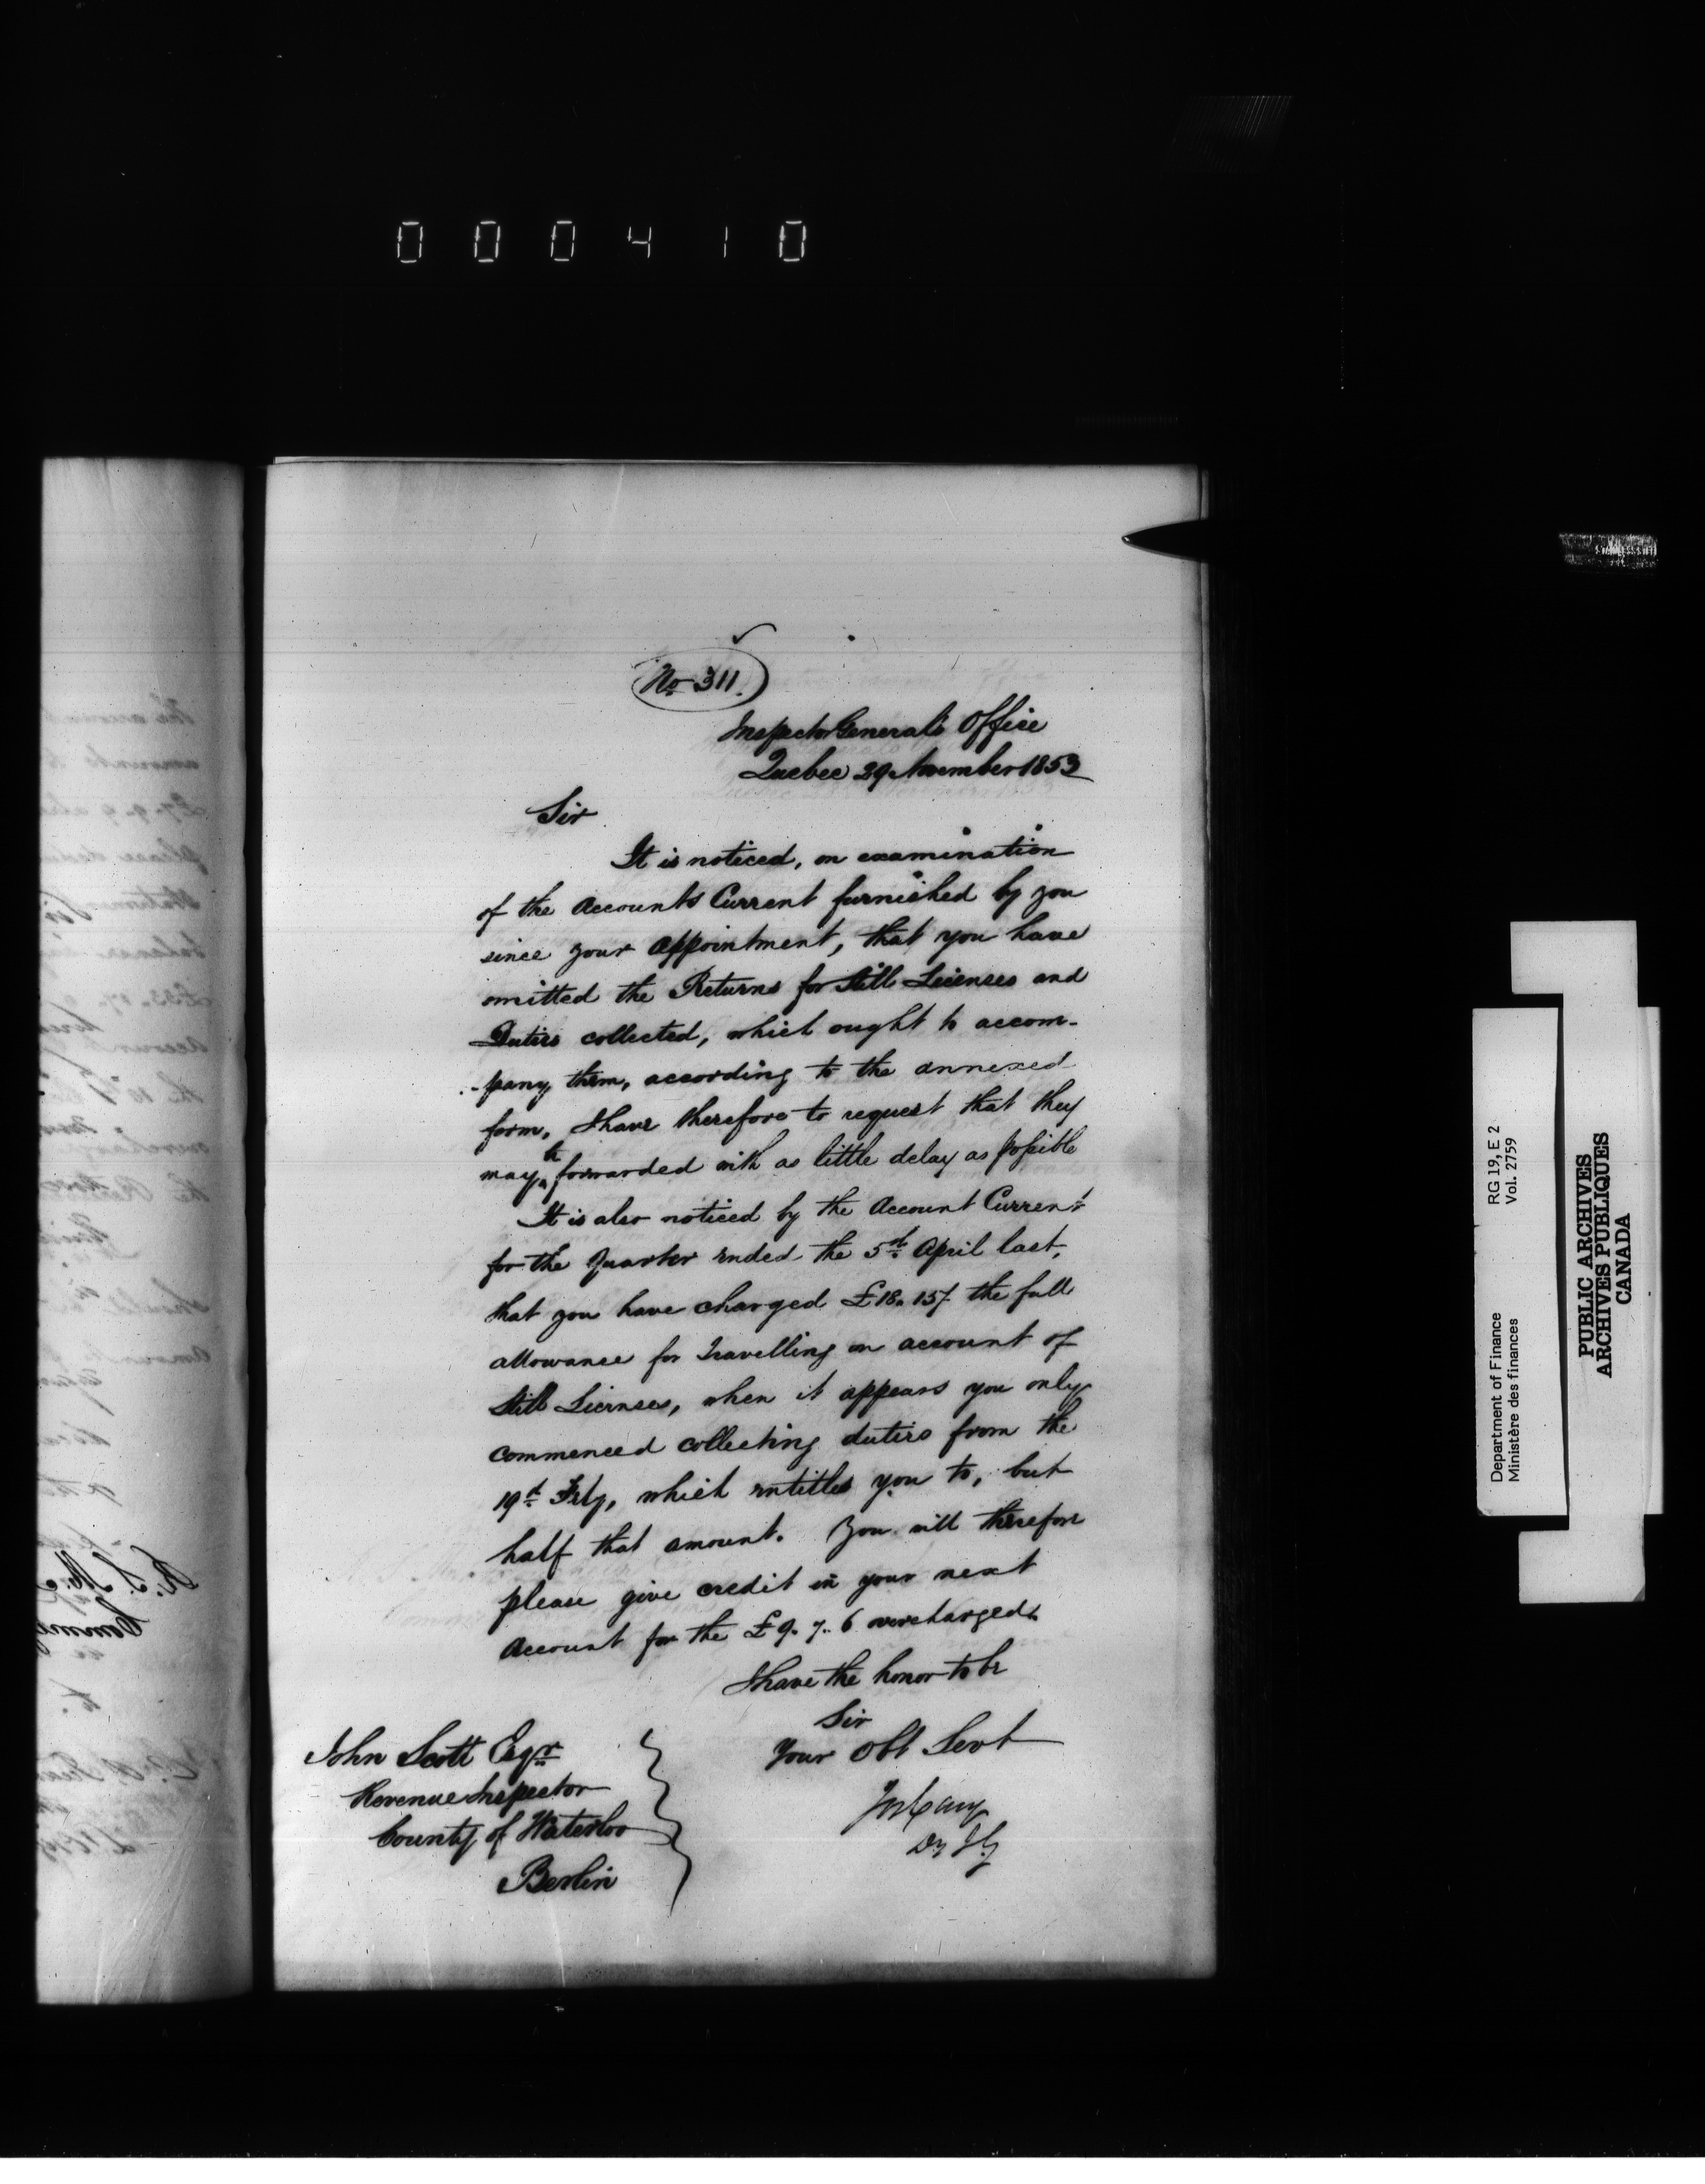 000410
No. 311.
Inspector General's Office
Quebec 29 November 1853
Sir
It is noticed, on examination
of the Accounts Current furnished by you
since your appointment, that you have
omitted the Returns for Still Licenses and
Duties collected, which ought to accom-
-pany them, according to the annexed
form. I have therefore to request that they
may be forwarded with as little delay as possible
It is also noticed by the Account Current
for the Quarter ended the 5th April last,
that you have charged £18. 15/. the full
allowance for travelling on account of
Still Licenses, when it appears you only
commenced collecting duties from the
19th Feby, which entitles you to, but
half that amount. You will therefore
please give credit in your next
Account for the £9. 7. 6 overcharged.
I have the honor to be
Sir
Your Obt Servt
Jos Cary
Dy I G
John Scott Esqr
Revenue Inspector
County of Waterloo
Berlin
Department of Finance RG 19, E 2
Ministère des finances Vol. 2759
PUBLIC ARCHIVES
ARCHIVES PUBLIQUES
CANADA